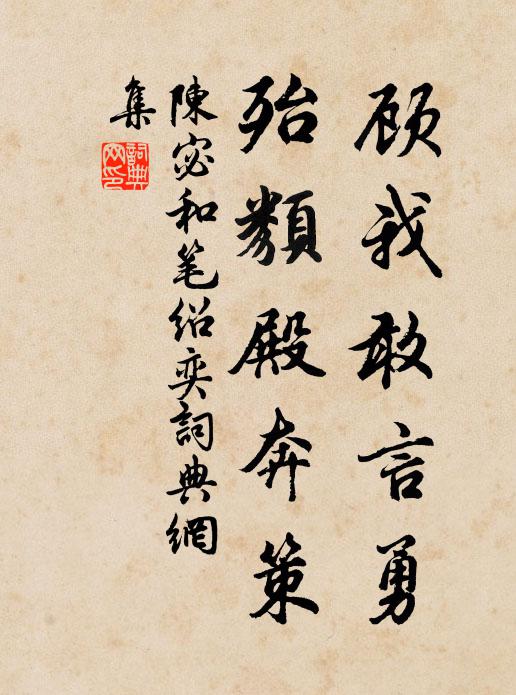 顾我敢言勇
殆類殿奔策
陳宓和笔绍奕詞典網
集
詞典
网印